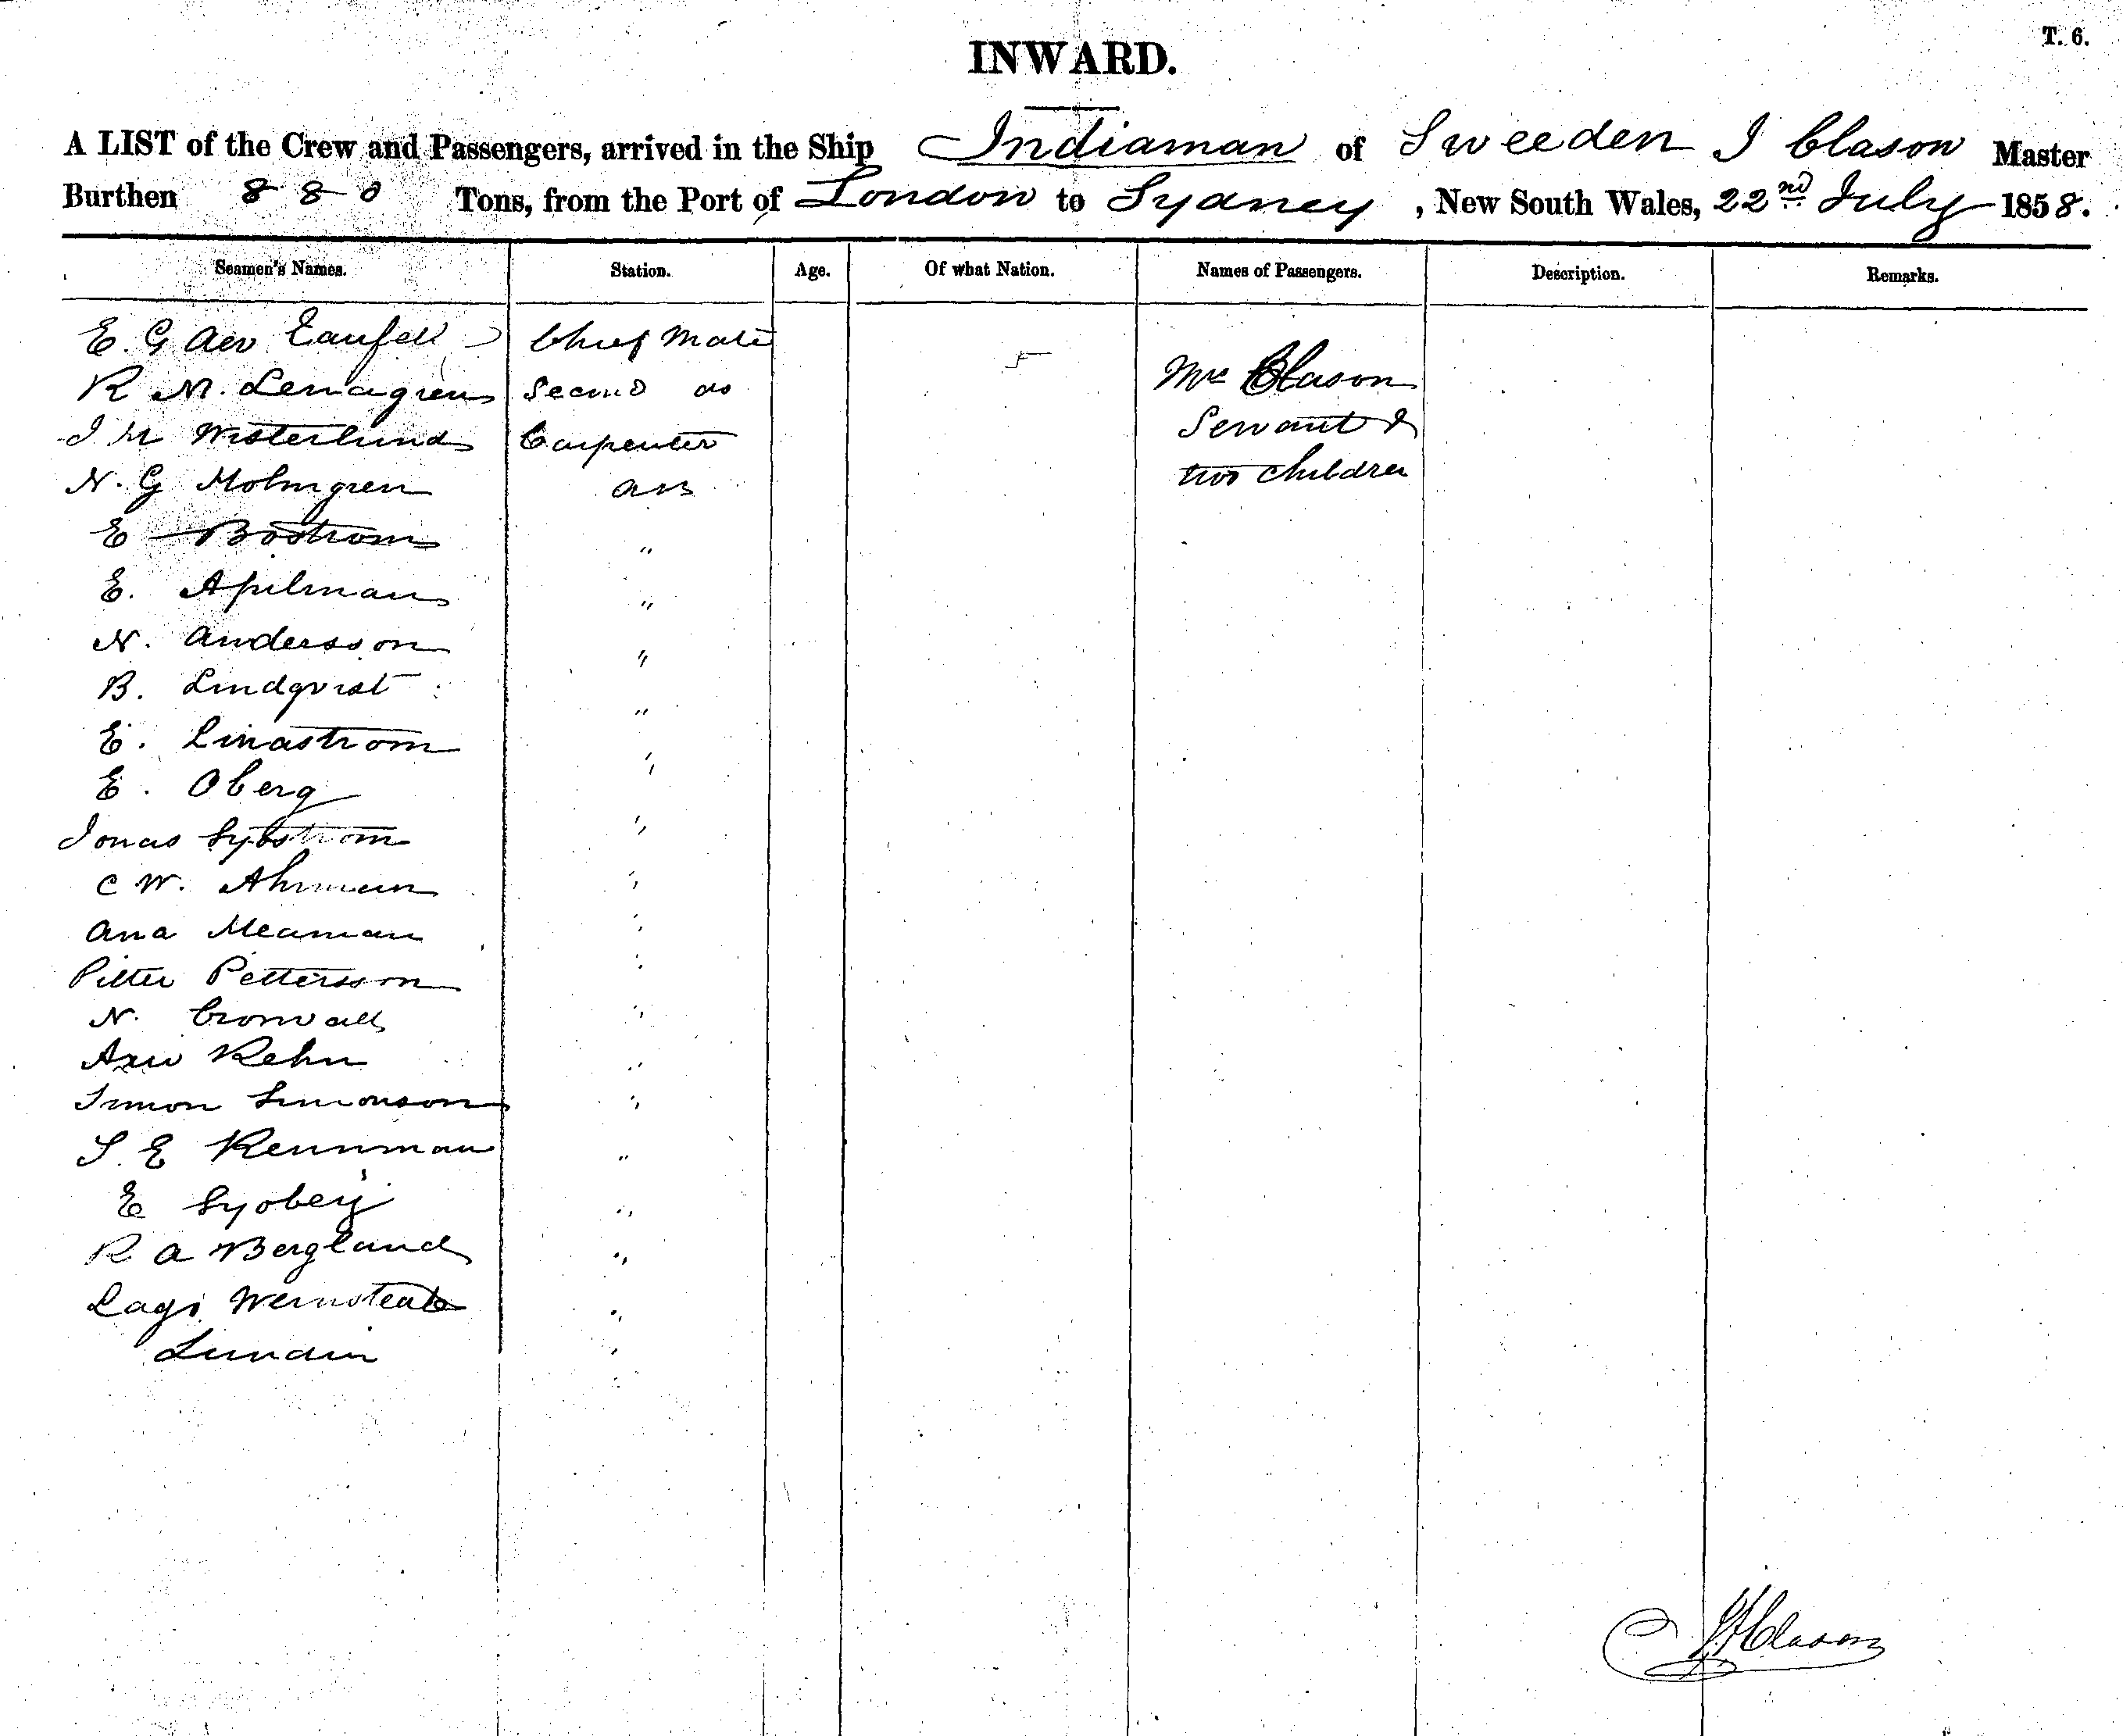 T. 6.
INWARD.
A LIST of the Crew and Passengers, arrived in the Ship Indiaman of Sweeden J Clason Master
Burthen 880 Tons, from the Port of London to Sydney, New South Wales, 22nd July 1858.
Seamen's Names. Station. Age. Of what Nation. Names of Passengers. Description. Remarks.
E. G. Chief Mate
R M. Second do Mrs Clason
Westerlund Carpenter Servant &
N. G Holmgren AB two Children
E Bostrom "
E. Apelman "
N. Andersson "
B. Lindqvist "
E. Lindstrom "
E. Oberg "
Jonas "
C W. Ahrman "
"
Petter Pettersson "
N. Cronvall "
Rehn "
Simon Simonson "
S. E Rennman "
E "
R A Bergland "
"
Lundin "
Clason